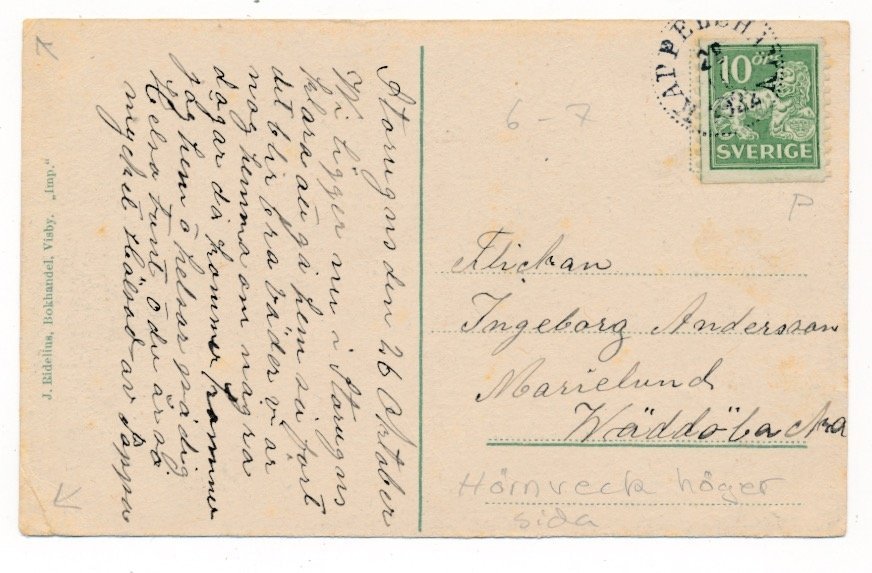 Storugns den 26 Oktober
Wi ligger nu i Storugns
klara att gå hem så fort
det blir bra väder vi är
nog hemma om några
dagar då kommer
jag hem å helsar på dig
Helsa Tant å du är så
mycket Hälsad av Pappa
J. Ridelius, Bokhandel, Visby. „Imp."
KAPPELSHAMN
1922
10 ÖRE
SVERIGE
6-7
P
Flickan
Ingeborg Andersson
Marielund
Wäddöbacka
Hörnveck höger
sida